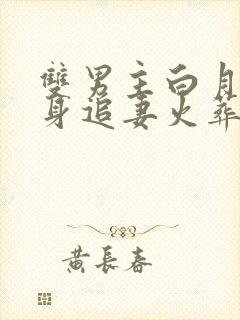 雙男主白月
身追妻火葬
黃長春